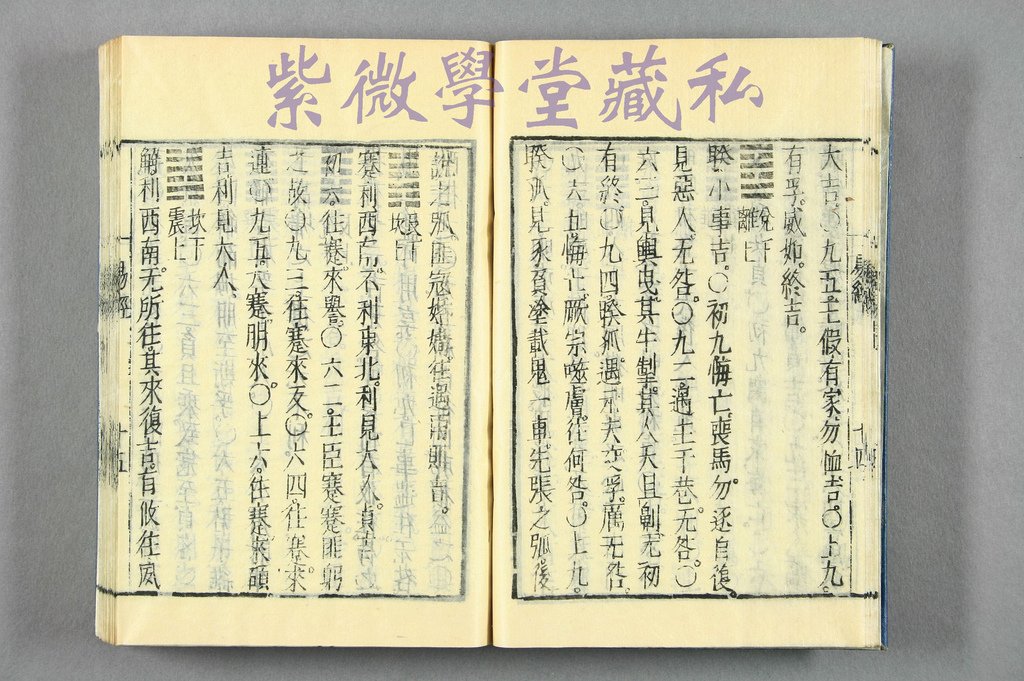 紫微學堂藏私
大吉。〇九五。王假有家。勿恤。吉。〇上九。
有孚。威如。終吉。
兌下
離上
睽。小事吉。〇初九。悔亡。喪馬勿。逐自復。
見惡人。无咎。〇九二。遇主于巷。无咎。〇
六三。見輿曳。其牛掣。其人天且劓。无初
有終。〇九四。睽孤。遇元夫。交孚。厲无咎。
〇六五。悔亡。厥宗噬膚。往何咎。〇上九。
睽孤。見豕負塗。載鬼一車。先張之弧。後
易經
十四
說之弧。匪寇婚媾。往遇雨則吉。
艮下
坎上
蹇。利西南。不利東北。利見大人。貞吉。
初六。往蹇。來譽。〇六二。王臣蹇蹇。匪躬
之故。〇九三。往蹇來反。〇六四。往蹇來
連。〇九五。大蹇。朋來。〇上六。往蹇。來碩
吉。利見大人。
坎下
震上
解。利西南。无所往。其來復吉。有攸往夙
易經
十五